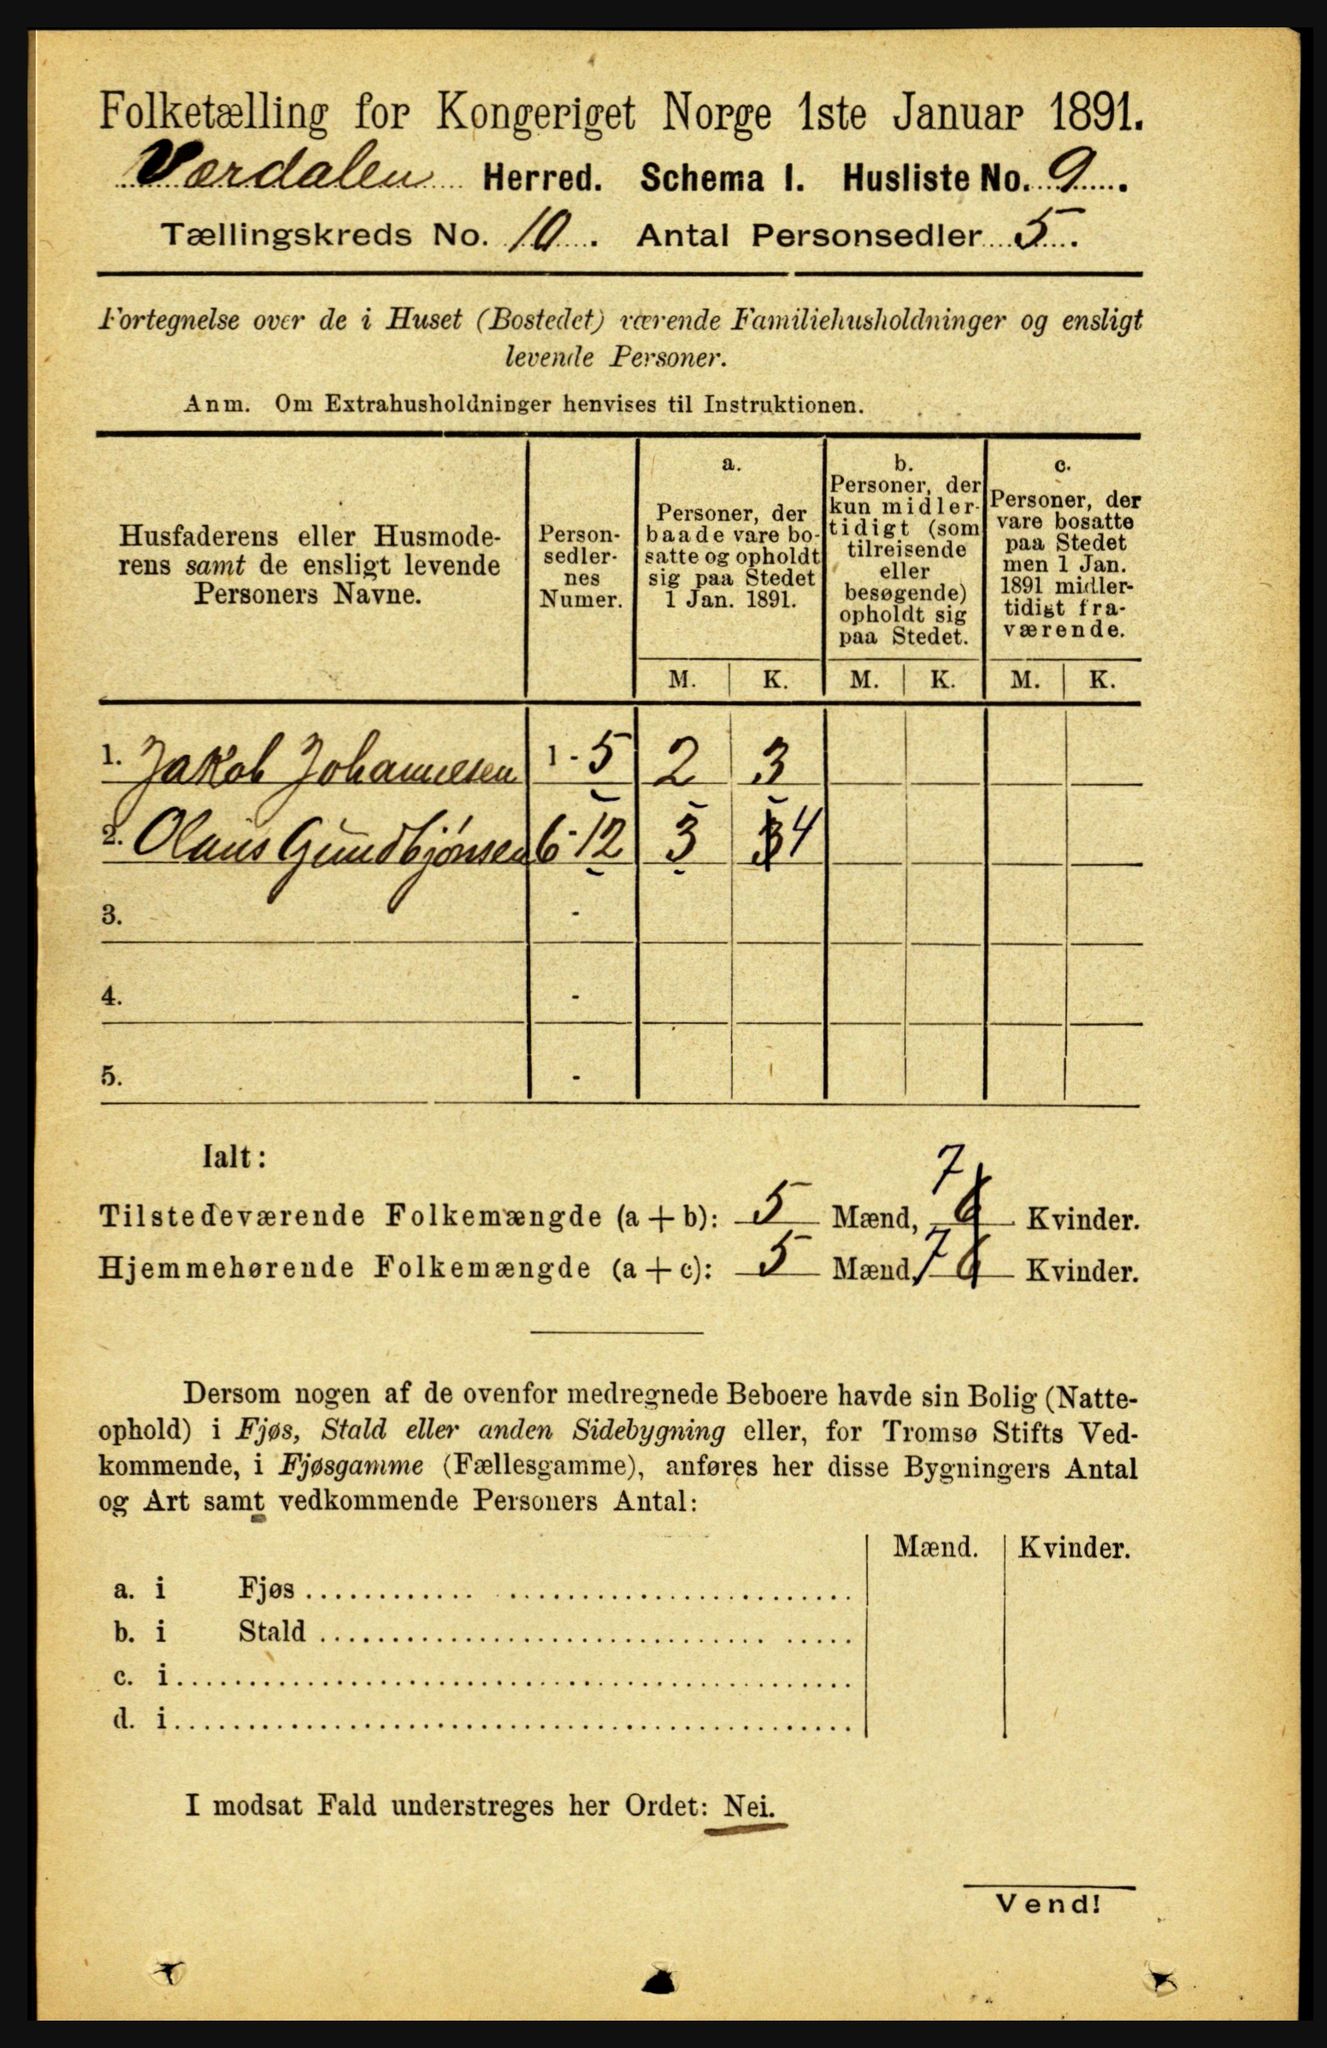 Folketælling for Kongeriget Norge 1ste Januar 1891.
Værdalen Herred. Schema I. Husliste No. 9.
Tællingskreds No. 10. Antal Personsedler 5.
Fortegnelse over de i Huset (Bostedet) værende Familiehusholdninger og ensligt
levende Personer.
Anm. Om Extrahusholdninger henvises til Instruktionen.
Husfaderens eller Husmode-
rens samt de ensligt levende
Personers Navne.
Person-
sedler-
nes
Numer.
a.
Personer, der
baade vare bo-
satte og opholdt
sig paa Stedet
1 Jan. 1891.
b.
Personer, der
kun midler-
tidigt (som
tilreisende
eller
besøgende)
opholdt sig
paa Stedet.
c.
Personer, der
vare bosatte
paa Stedet
men 1 Jan.
1891 midler-
tidigt fra-
værende.
M. K. M. K. M. K.
1. Jakob Johannesen 1 - 5 2 3
2. Olaus Gundbjønsen 6 - 12 3 3 4
3. -
4. -
5. -
Ialt:
Tilstedeværende Folkemængde (a + b): 5 Mænd, 7 6 Kvinder.
Hjemmehørende Folkemængde (a + c): 5 Mænd, 7 6 Kvinder.
Dersom nogen af de ovenfor medregnede Beboere havde sin Bolig (Natte-
ophold) i Fjøs, Stald eller anden Sidebygning eller, for Tromsø Stifts Ved-
kommende, i Fjøsgamme (Fællesgamme), anføres her disse Bygningers Antal
og Art samt vedkommende Personers Antal:
Mænd. Kvinder.
a. i Fjøs
b. i Stald
c. i
d. i
I modsat Fald understreges her Ordet: Nei.
Vend!